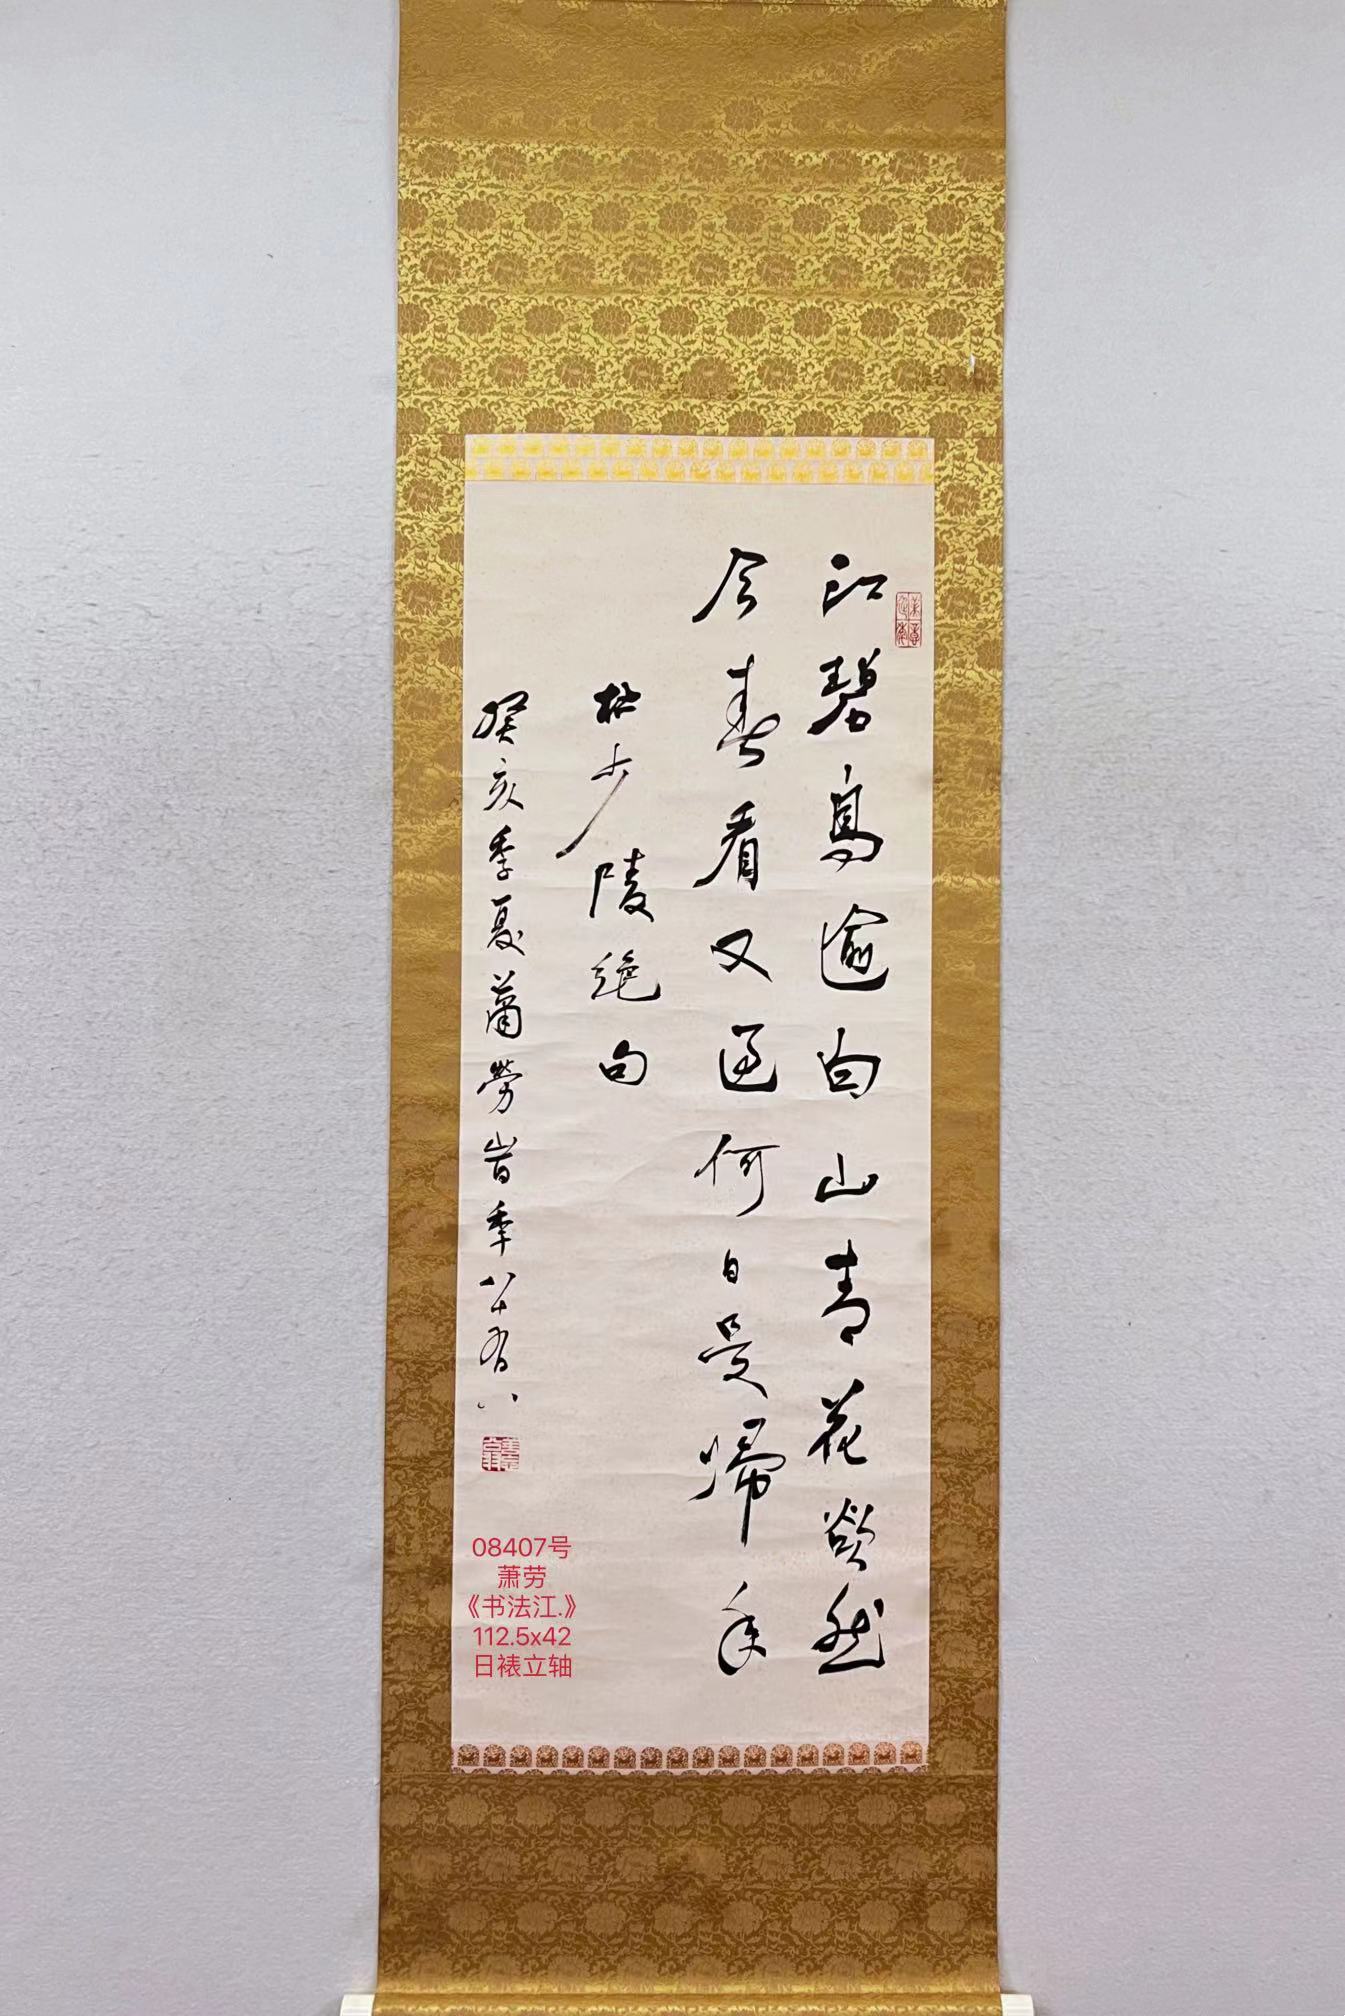 江碧鳥逾白山青花欲然
今春看又過何日是歸年
杜少陵絶句
癸亥季夏蕭勞岢年八十有八
08407号
萧劳
《书法江.》
112.5x42
日裱立轴